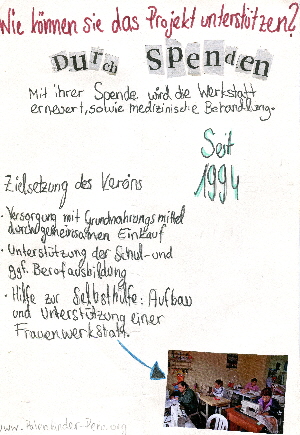 Wie können sie das Projekt unterstützen?
Durch Spenden
Mit ihrer Spende wird die Werkstatt
erneuert, sowie medizinische Behandlung.
Seit
1994
Zielsetzung des Vereins
· Versorgung mit Grundnahrungsmittel
durch gemeinsamen Einkauf
· Unterstützung der Schul- und
ggf. Berufausbildung
· Hilfe zur Selbsthilfe: Aufbau
und Unterstützung einer
Frauenwerkstatt.